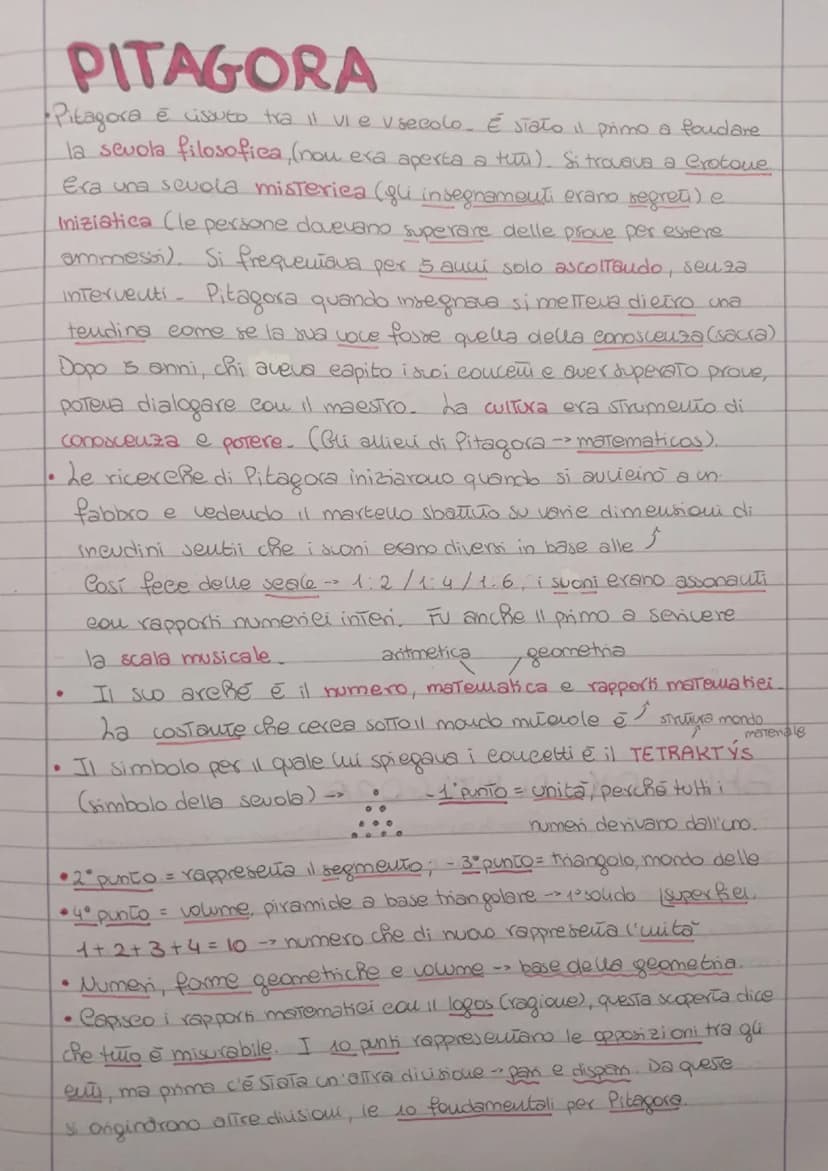 PITAGORA
• Pitagora è vissuto tra il VI e V secolo. È stato il primo a fondare
la scuola filosofica, (non era aperta a tutti). Si trovava a Crotone
Era una scuola misterica (gli insegnamenti erano segreti) e
Iniziatica (le persone dovevano superare delle prove per essere
ammessi). Si frequentava per 5 anni solo ascoltando, senza
interventi. Pitagora quando insegnava si metteva dietro una
tendina come se la sua voce fosse quella della conoscenza (sacra)
Dopo 5 anni, chi aveva capito i suoi concetti e aver superato prove,
poteva dialogare con il maestro. La cultura era strumento di
conoscenza e potere. (Gli allievi di Pitagora -> matematicos).
• Le ricerche di Pitagora iniziarono quando si avvicinò a un
fabbro e vedendo il martello sbattuto su varie dimensioni di
incudini sentii che i suoni erano diversi in base alle ↑
Così fece delle scale -> 1:2 / 1:4 / 1:6, i suoni erano assonanti
con rapporti numerici interi. Fu anche il primo a scrivere
la scala musicale. aritmetica geometria
• Il suo archè è il numero, matematica e rapporti matematici.
La costante che cerca sotto il mondo mutevole è ↑ struttura mondo
materiale
• Il simbolo per il quale lui spiegava i concetti è il TETRAKTÝS
(simbolo della scuola) -> - 1° punto = unità, perché tutti i
numeri derivano dall'uno.
• 2° punto = rappresenta il segmento; - 3° punto = triangolo, mondo delle
• 4° punto = volume, piramide a base triangolare -> 1° solido |superfici.
1+2+3+4=10 -> numero che di nuovo rappresenta l'unità
• Numeri, forme geometriche e volume -> base della geometria.
• Capisco i rapporti matematici con il logos (ragione), questa scoperta dice
che tutto è misurabile. I 10 punti rappresentano le opposizioni tra gli
enti, ma prima c'è stata un'altra divisione -> pari e dispari. Da queste
si origindrono altre divisioni, le 10 fondamentali per Pitagora.